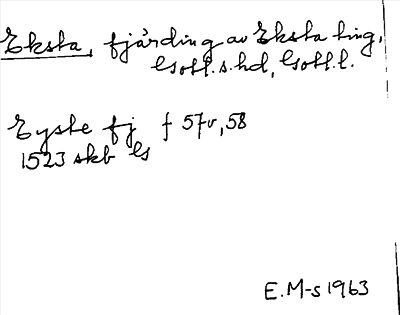 Eksta, fjärding av Eksta ting,
Gotl. s. hd, Gotl. l.
Eyste fj f 57v, 58
1523 skb Gs
E. M-s 1963